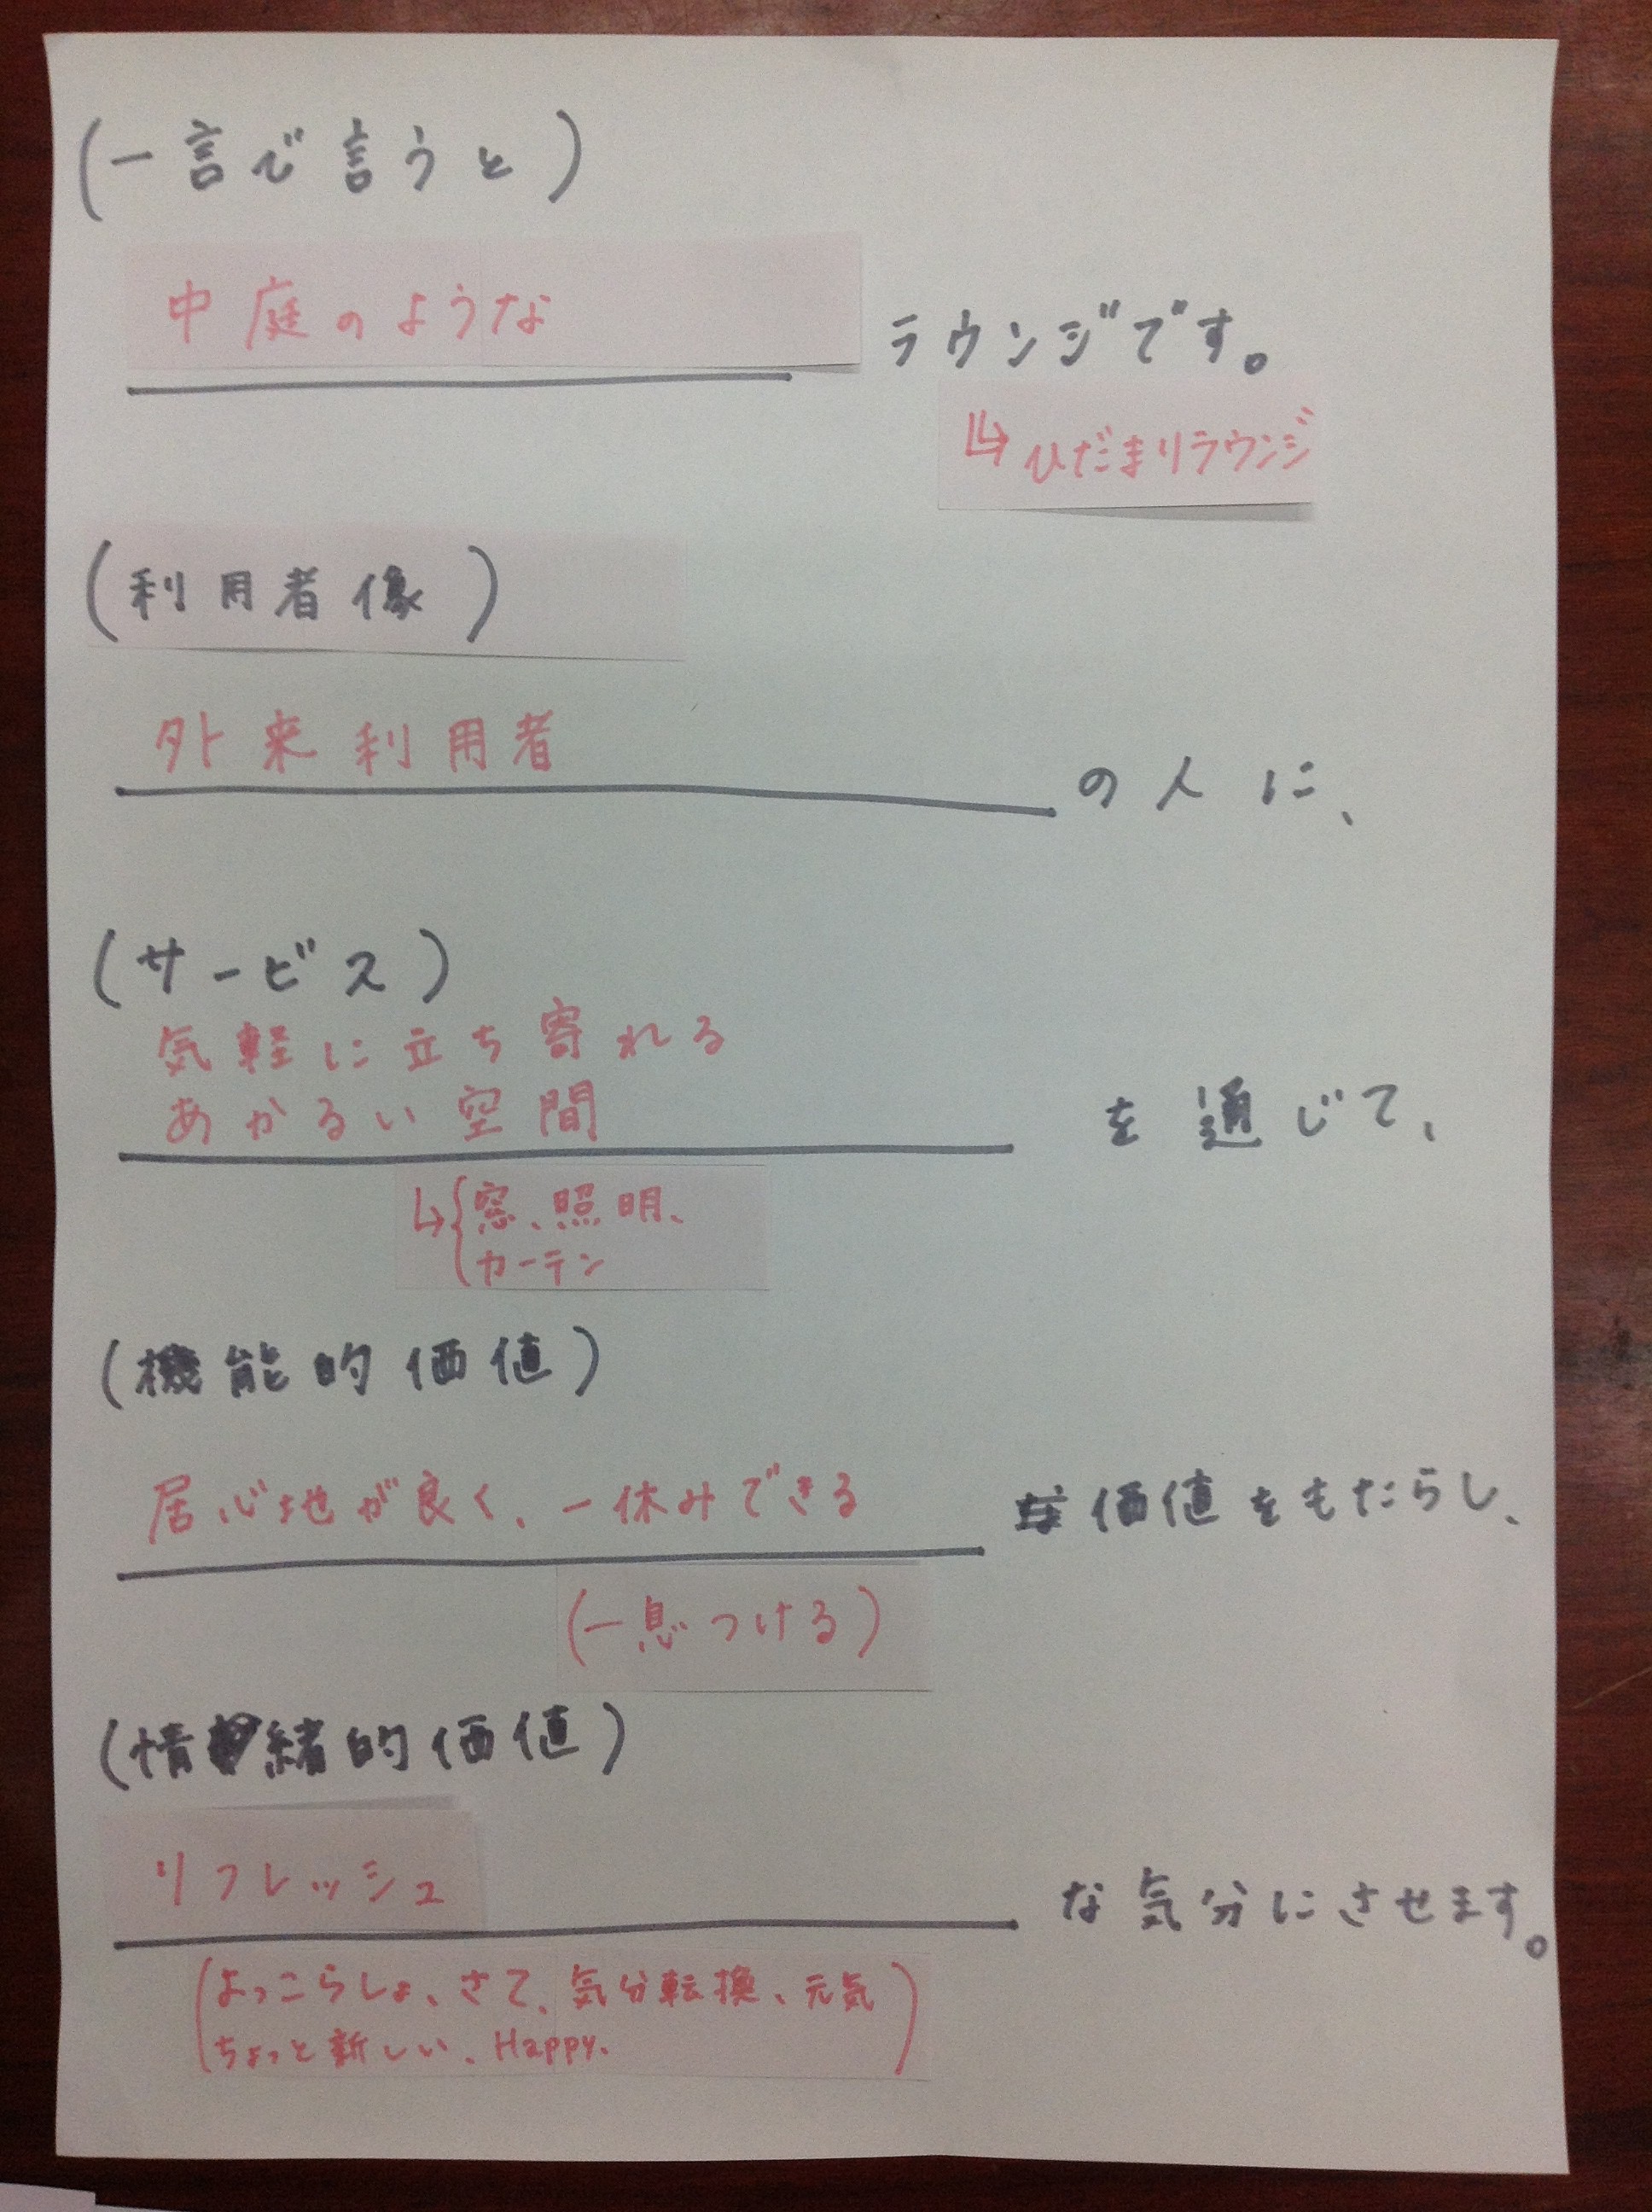 (一言で言うと)
中庭のような ラウンジです。
↳ ひだまりラウンジ
(利用者像)
外来利用者 の人に、
(サービス)
気軽に立ち寄れる
あかるい空間 を通じて、
↳{窓、照明、
カーテン
(機能的価値)
居心地が良く、一休みできる 価値をもたらし、
(一息つける)
(情緒的価値)
リフレッシュ な気分にさせます。
(よっこらしょ、さて、気分転換、元気
ちょっと新しい、Happy、)